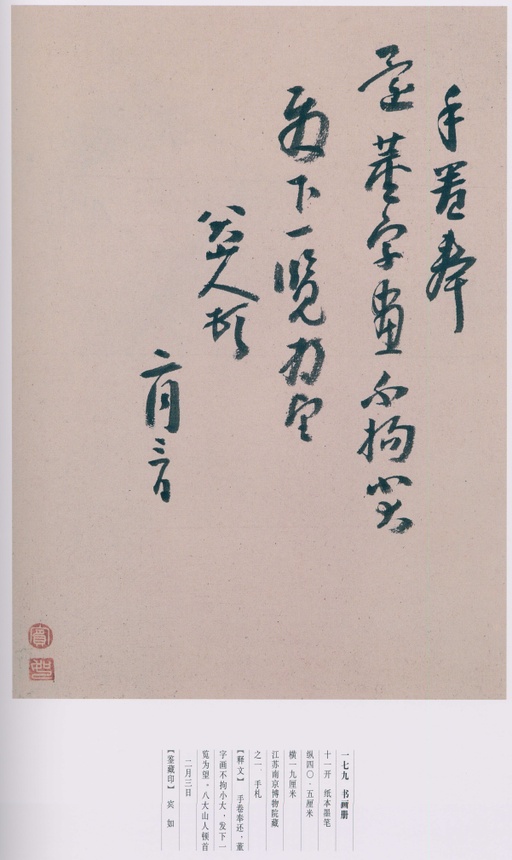 手卷奉
还董字画不拘小大
发下一览为望
八大山人顿首
二月三日
一七九 书画册
十一开 纸本墨笔
纵四〇·五厘米
横一九厘米
江苏南京博物院藏
之一 手札
【释文】 手卷奉还，董
字画不拘小大，发下一
览为望。八大山人顿首
二月三日
【鉴藏印】 宾 如